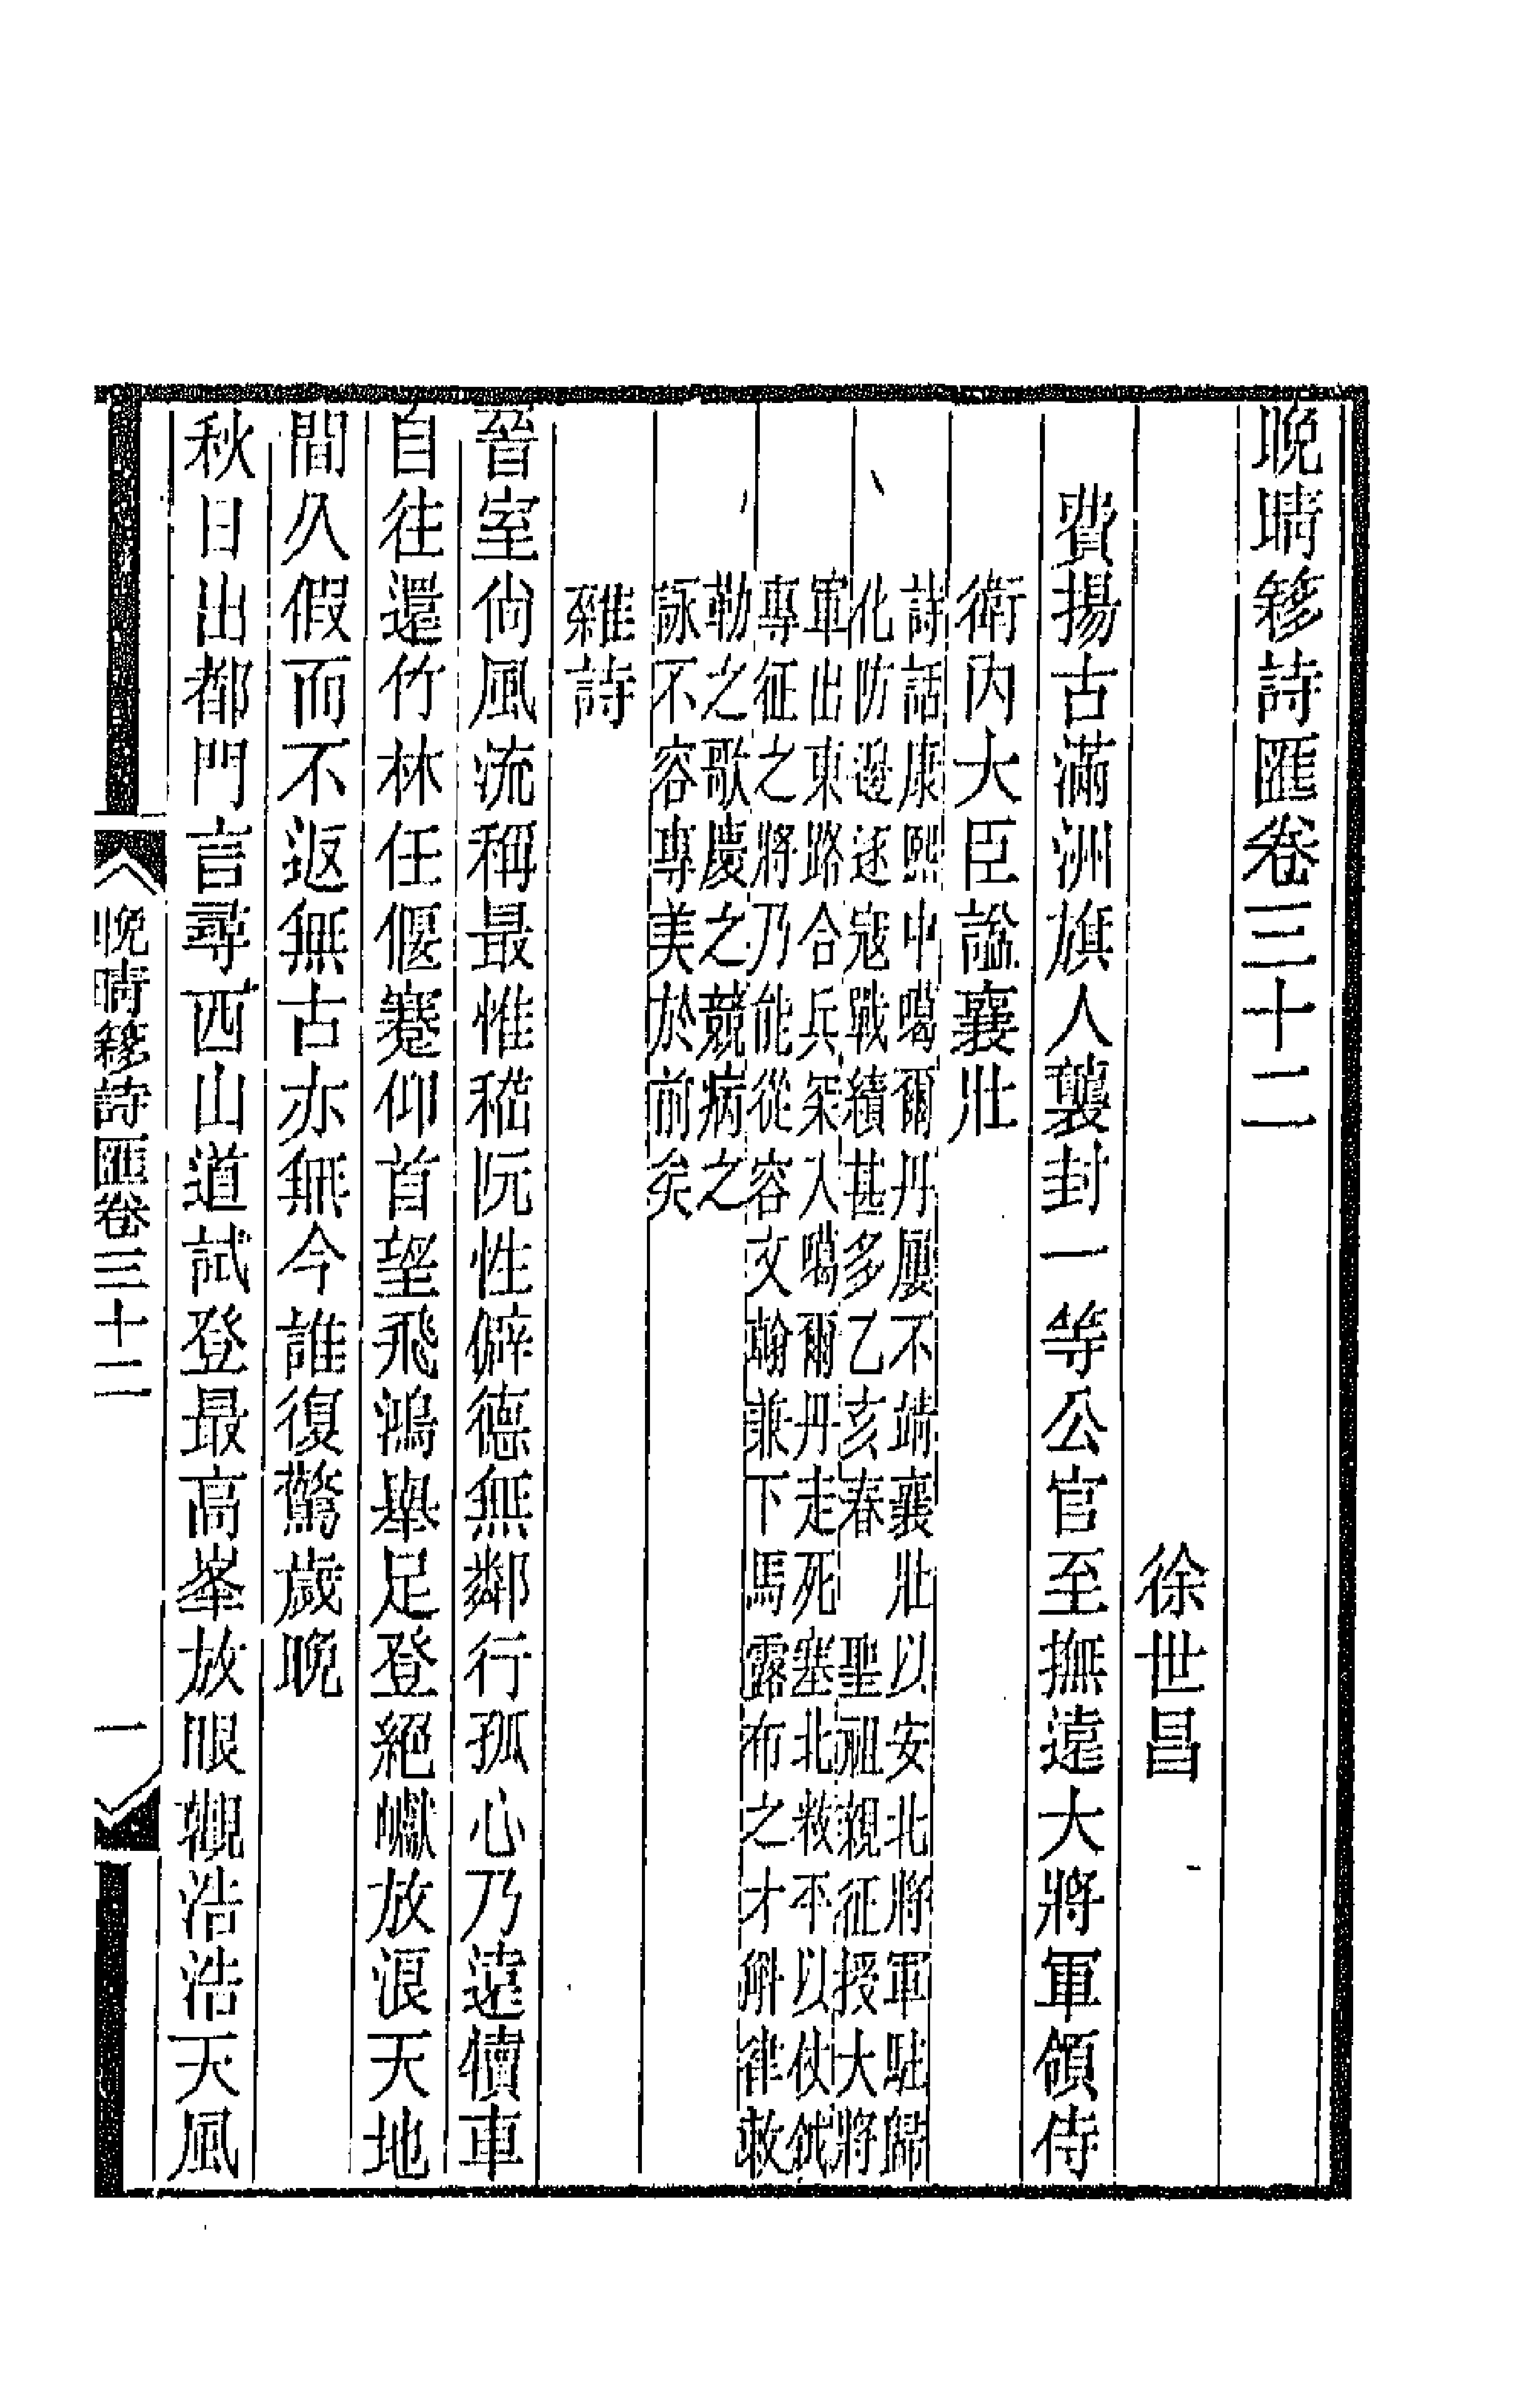 晚晴簃詩匯卷三十二
徐世昌
費揚古滿洲旗人襲封一等公官至撫遠大將軍領侍
衛內大臣諡襄壯
詩話康熙中噶爾丹屢不靖襄壯以安北將軍駐歸
化防邊逐寇戰績甚多乙亥春　聖祖親征授大將
軍出東路合兵深入噶爾丹走死塞北敉平以仗鉞
專征之將乃能從容文翰兼下馬露布之才斛律敕
勒之歌慶之競病之
詠不容專美於前矣
雜詩
晉室尚風流稱最惟嵇阮性僻德無鄰行孤心乃遠犢車
自往還竹林任偃蹇仰首望飛鴻舉足登絕巘放浪天地
間久假而不返無古亦無今誰復驚歲晚
秋日出都門言尋西山道試登最高峯放眼觀浩浩天風
晚晴簃詩匯卷三十二
一